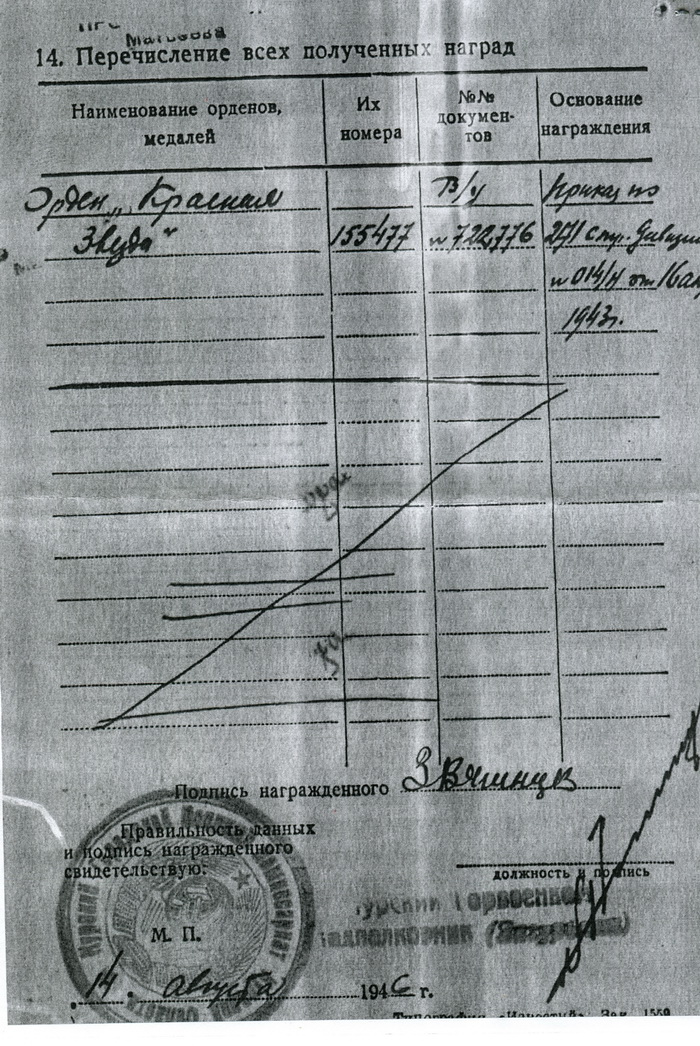 14. Перечисление всех полученных наград
Наименование орденов, медалей
Их номера
№№ документов
Основание награждения
Орден „Красная
Звезда“
155477
В/ч
№ 722776
Приказ по
271 стр. дивизии
№ 014/н от 16
1943г.
Подпись награжденного
Правильность данных
и подпись награжденного
свидетельствую:
должность и подпись
Горвоенком
подполковник
М. П.
14 августа 1946 г.